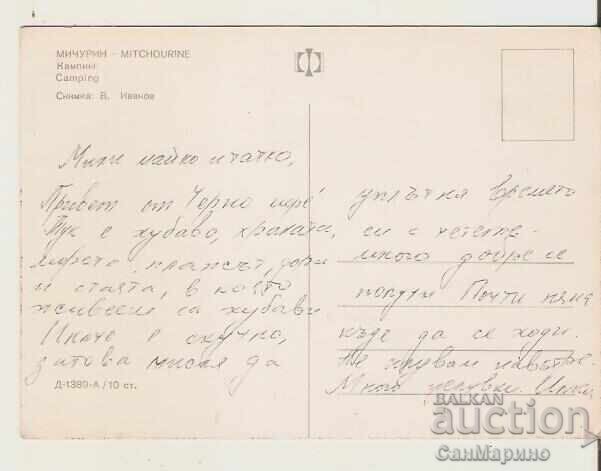 МИЧУРИН - MITCHOURINE
Кампинг
Camping
Снимка: В. Иванов
Мили майко и татко,
Привет от Черно море
Тук е хубаво, храната,
морето, плажът, дори
и стаята, в която
живеем са хубави
Иначе е скучно,
затова мисля да
уплътня времето
си с четене.
много добре се
получи Почти няма
къде да се ходи.
Не
Много целувки.
Д-1389-А / 10 ст.
BALKAN
auction
СанМарино